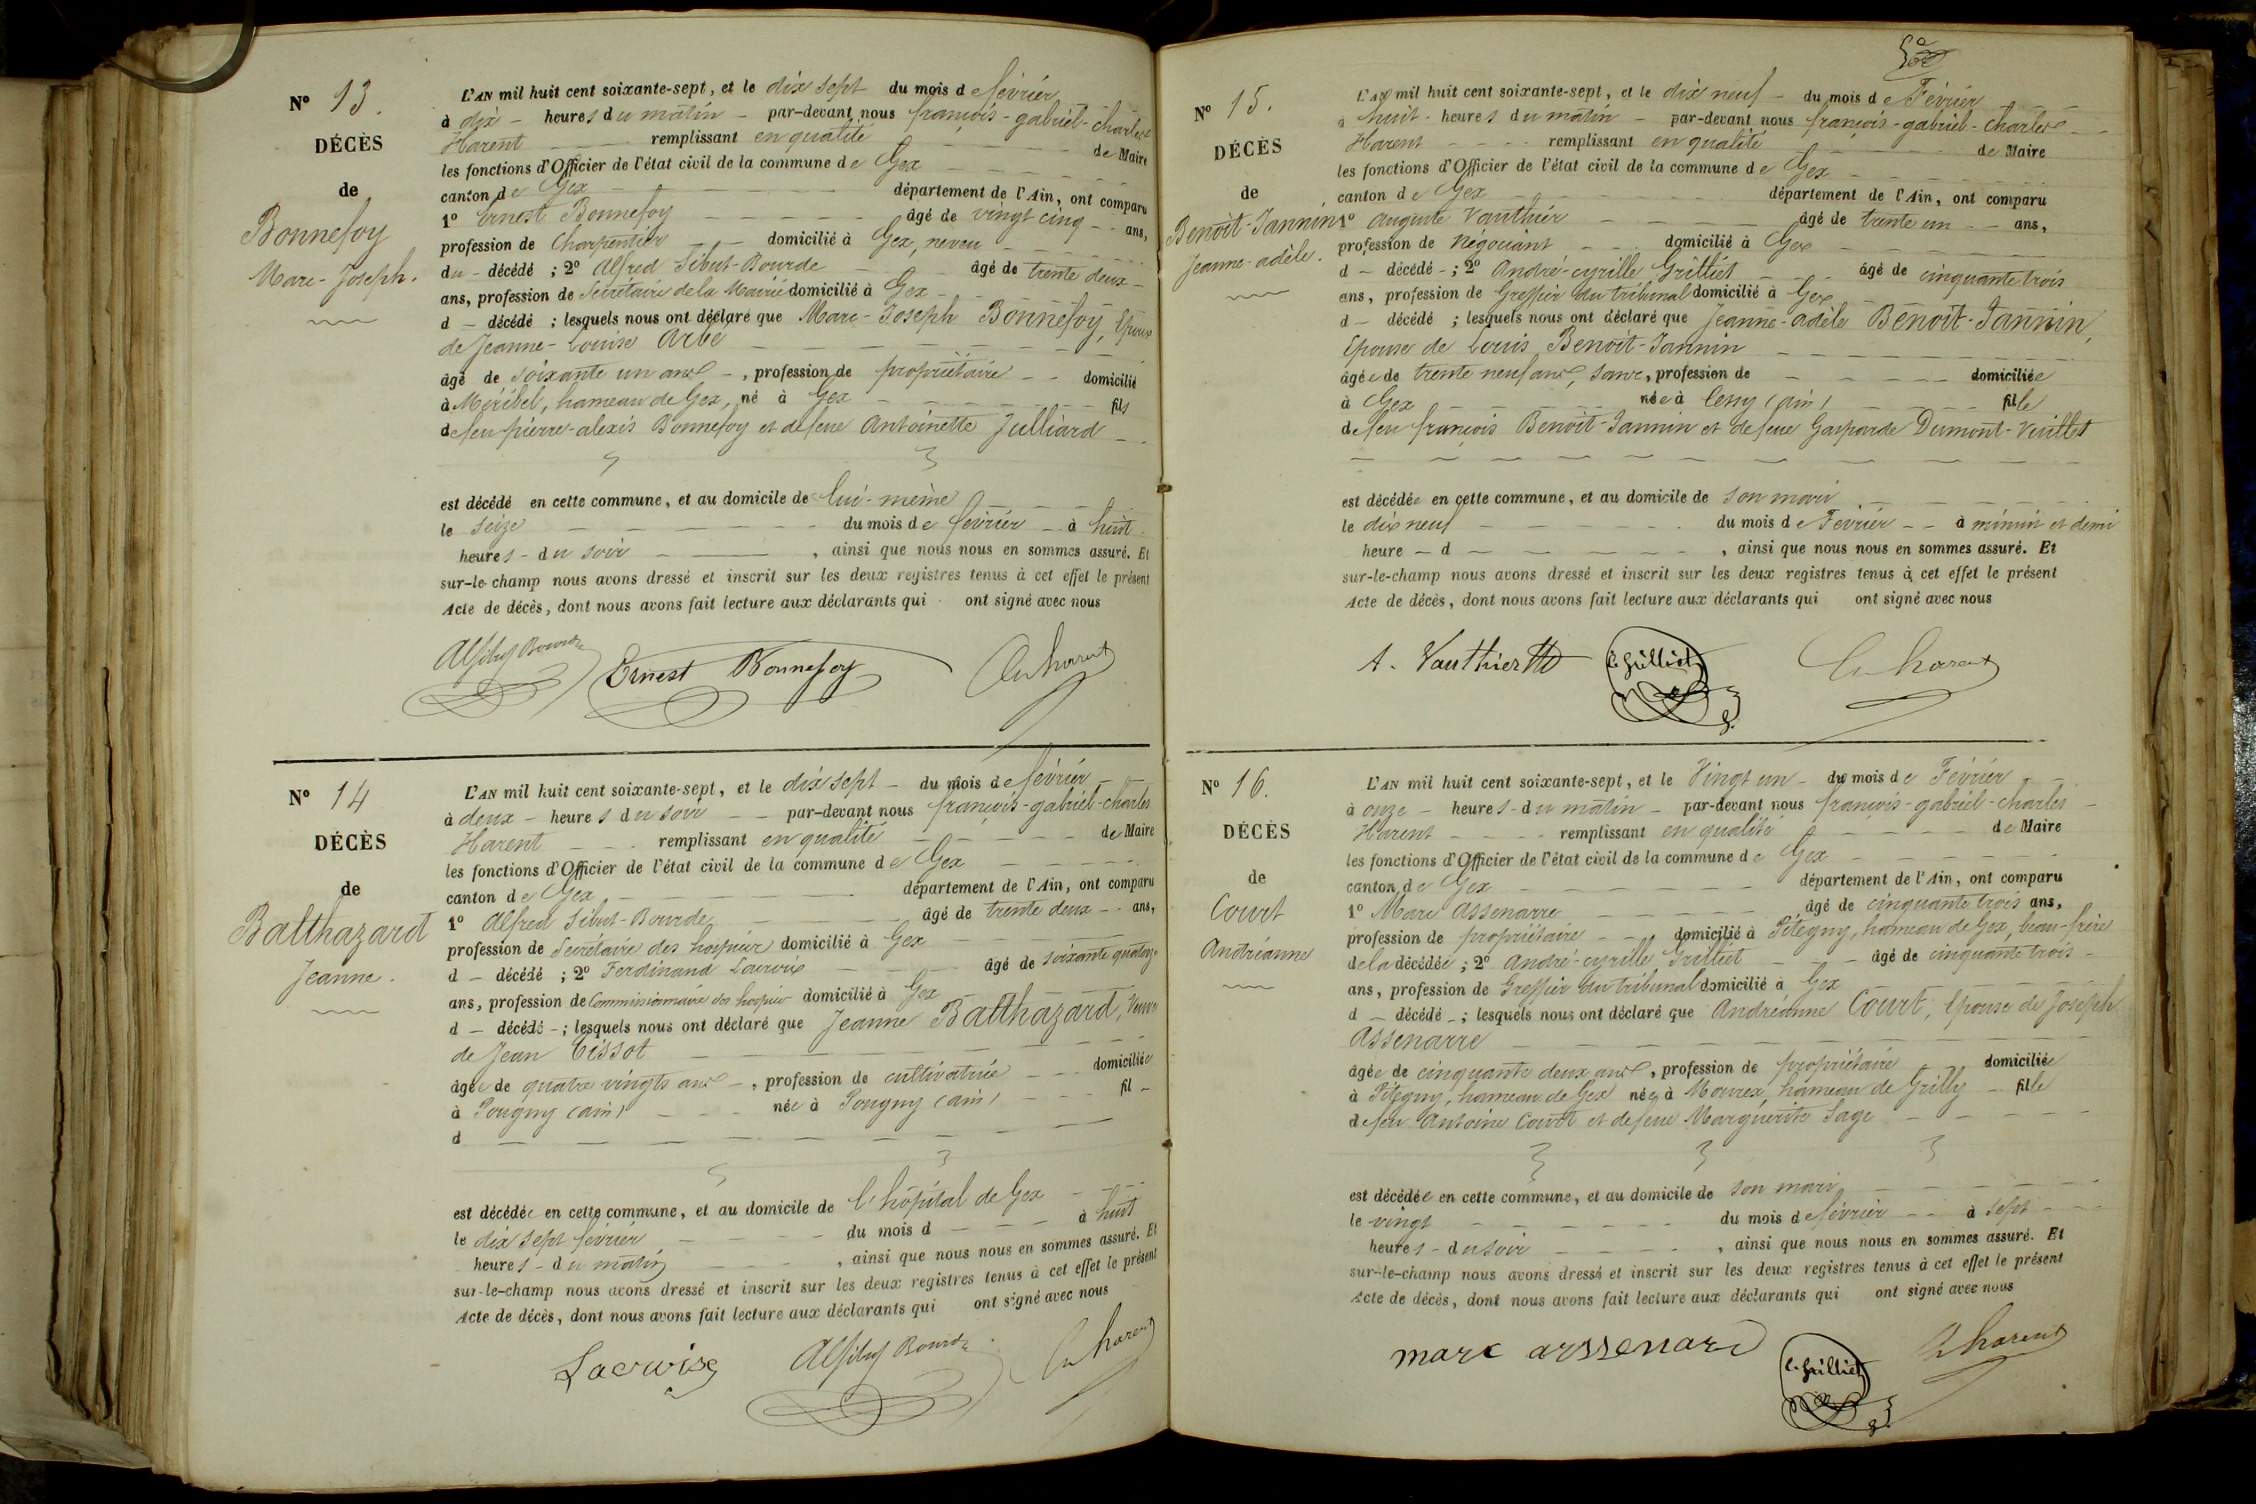 N° 13.
DÉCÈS
de
Bonnefoy
Marc-Joseph.
L'AN mil huit cent soixante-sept, et le dix sept du mois de février
à dix - heures du matin - par-devant nous françois-gabriel-charles
Harent remplissant en qualité de Maire
les fonctions d'Officier de l'état civil de la commune de Gex
canton de Gex département de l'Ain, ont comparu
1° Ernest Bonnefoy âgé de vingt cinq ans,
profession de Charpentier domicilié à Gex, neveu
du - décédé ; 2° Alfred Sibut-Bourde âgé de trente deux
ans, profession de Secrétaire de la Mairie domicilié à Gex
d - décédé ; lesquels nous ont déclaré que Marc-Joseph Bonnefoy, Epoux
de Jeanne-Louise Arbé
âgé de soixante un ans -, profession de propriétaire domicilié
à Méribel, hameau de Gex, né à Gex fils
de feu pierre-alexis Bonnefoy et de feue Antoinette Julliard
est décédé en cette commune, et au domicile de lui-même
le seize du mois de février à huit
heures - du soir , ainsi que nous nous en sommes assuré. Et
sur-le-champ nous avons dressé et inscrit sur les deux registres tenus à cet effet le présent
Acte de décès, dont nous avons fait lecture aux déclarants qui ont signé avec nous
Ernest Bonnefoy Ch harent
N° 14
DÉCÈS
de
Balthazard
Jeanne.
L'AN mil huit cent soixante-sept, et le dix sept - du mois de février
à deux - heures du soir par-devant nous françois-gabriel-charles
Harent remplissant en qualité de Maire
les fonctions d'Officier de l'état civil de la commune de Gex
canton de Gex département de l'Ain, ont comparu
1° Alfred Sibut-Bourde âgé de trente deux ans,
profession de Secrétaire des hospices domicilié à Gex
d - décédé ; 2° Ferdinand Lacroix âgé de soixante quatorze
ans, profession de Commissionnaire des hospices domicilié à Gex
d - décédé - ; lesquels nous ont déclaré que Jeanne Balthazard, Veuve
de Jean Tissot
âgée de quatre vingts ans -, profession de cultivatrice domiciliée
à Pougny (ain) née à Pougny (ain) fil -
d
est décédée en cette commune, et au domicile de l'hôpital de Gex
le dix sept février du mois d à huit
heures - du matin , ainsi que nous nous en sommes assuré. Et
sur-le-champ nous avons dressé et inscrit sur les deux registres tenus à cet effet le présent
Acte de décès, dont nous avons fait lecture aux déclarants qui ont signé avec nous
Lacroix Ch harent
N° 15.
DÉCÈS
de
Benoît-Jannin
Jeanne-adèle.
L'AN mil huit cent soixante-sept, et le dix neuf - du mois de Février
à huit - heures du matin - par-devant nous françois-gabriel-charles
Harent remplissant en qualité de Maire
les fonctions d'Officier de l'état civil de la commune de Gex
canton de Gex département de l'Ain, ont comparu
1° auguste Vauthier âgé de trente un ans,
profession de Négociant domicilié à Gex
d - décédé - ; 2° André-cyrille Grilliet âgé de cinquante trois
ans, profession de Greffier du tribunal domicilié à Gex
d - décédé ; lesquels nous ont déclaré que Jeanne-adèle Benoît-Jannin,
Epouse de Louis Benoît-Jannin
âgée de trente neuf ans, sans, profession de domiciliée
à Gex née à Cessy (ain) fille
de feu françois Benoît-Jannin et de feue Gasparde Dumont-Vuillet
est décédée en cette commune, et au domicile de son mari
le dix neuf du mois de Février à minuit et demi
heure - d , ainsi que nous nous en sommes assuré. Et
sur-le-champ nous avons dressé et inscrit sur les deux registres tenus à cet effet le présent
Acte de décès, dont nous avons fait lecture aux déclarants qui ont signé avec nous
A. Vauthier C. Grilliet Ch harent
N° 16.
DÉCÈS
de
Court
Andréanne
L'AN mil huit cent soixante-sept, et le Vingt un - du mois de Février
à onze - heures - du matin - par-devant nous françois-gabriel-charles
Harent remplissant en qualité de Maire
les fonctions d'Officier de l'état civil de la commune de Gex
canton de Gex département de l'Ain, ont comparu
1° Marc Assenarre âgé de cinquante trois ans,
profession de propriétaire domicilié à Pitegny, hameau de Gex, beau-frère
de la décédée ; 2° André-cyrille Grilliet âgé de cinquante trois
ans, profession de Greffier du tribunal domicilié à Gex
d - décédé - ; lesquels nous ont déclaré que Andréanne Court, Epouse de Joseph
Assenarre
âgée de cinquante deux ans, profession de propriétaire domiciliée
à Pitegny, hameau de Gex née à Mourex, hameau de Grilly fille
de feu Antoine Court et de feue Marguerite Sage
est décédée en cette commune, et au domicile de son mari
le vingt du mois de février à sept
heures - du soir , ainsi que nous nous en sommes assuré. Et
sur-le-champ nous avons dressé et inscrit sur les deux registres tenus à cet effet le présent
Acte de décès, dont nous avons fait lecture aux déclarants qui ont signé avec nous
marc arssenare C. Grilliet Ch harent